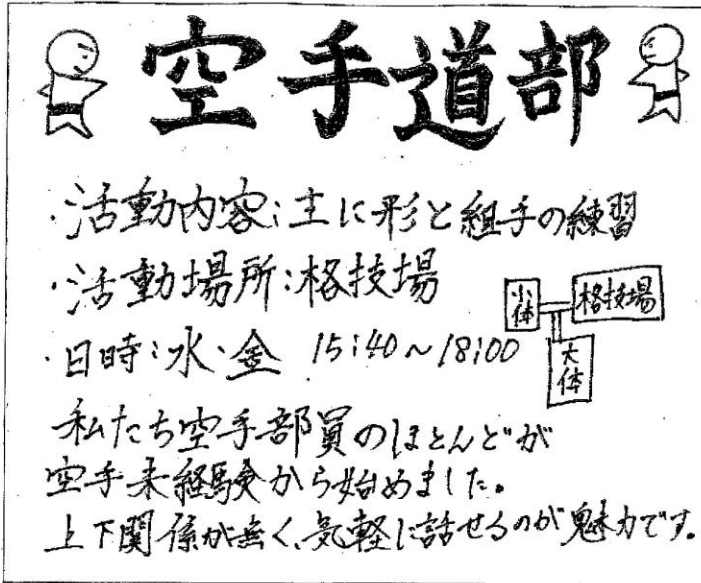 空手道部
・活動内容：主に形と組手の練習
・活動場所：格技場
小体
格技場
大体
・日時：水・金 15:40～18:00
私たち空手部員のほとんどが
空手未経験から始めました。
上下関係が無く、気軽に話せるのが魅力です。